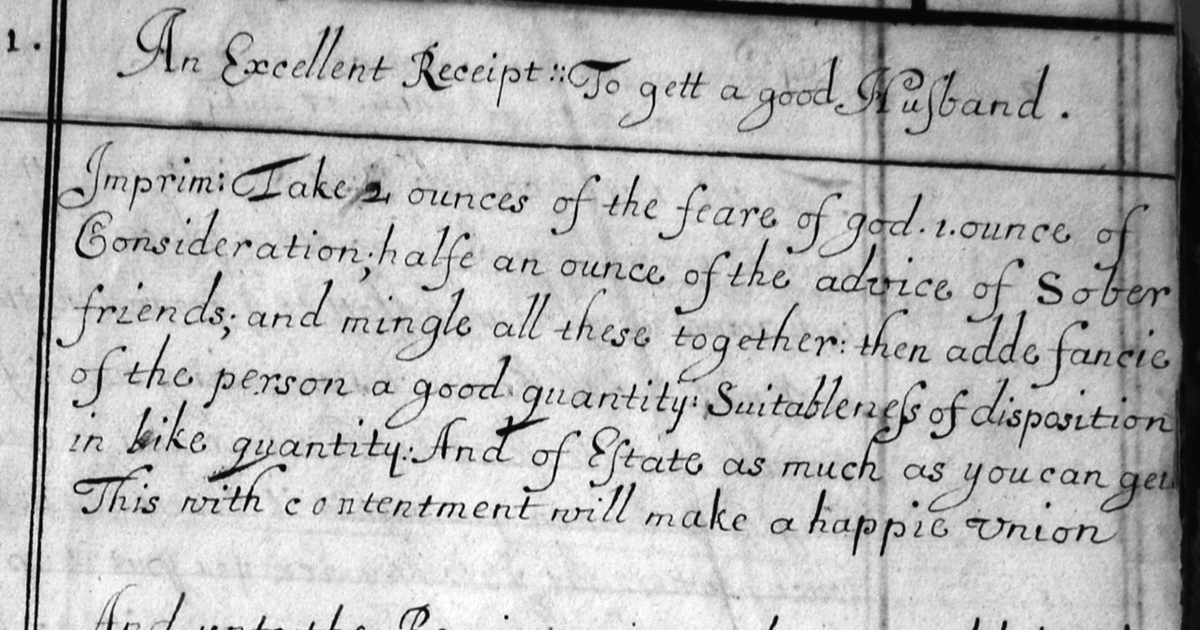 1.
An Excellent Receipt :: To gett a good Husband.
Imprim: Take 2 ounces of the feare of god. 1. ounce of
Consideration; halfe an ounce of the advice of Sober
friends; and mingle all these together: then adde fancie
of the person a good quantity: Suitableness of disposition
in like quantity: And of Estate as much as you can get
This with contentment will make a happie Union
And unto the